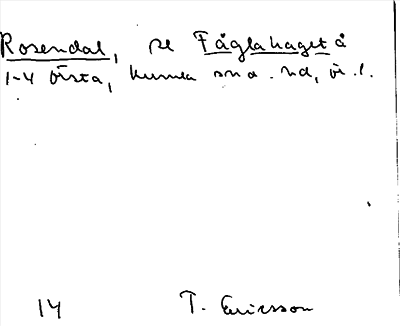 Rosendal, se Fåglahaget å
1-4 Örsta, Kumla snd. hd, ör. l.
14 T. Ericsson